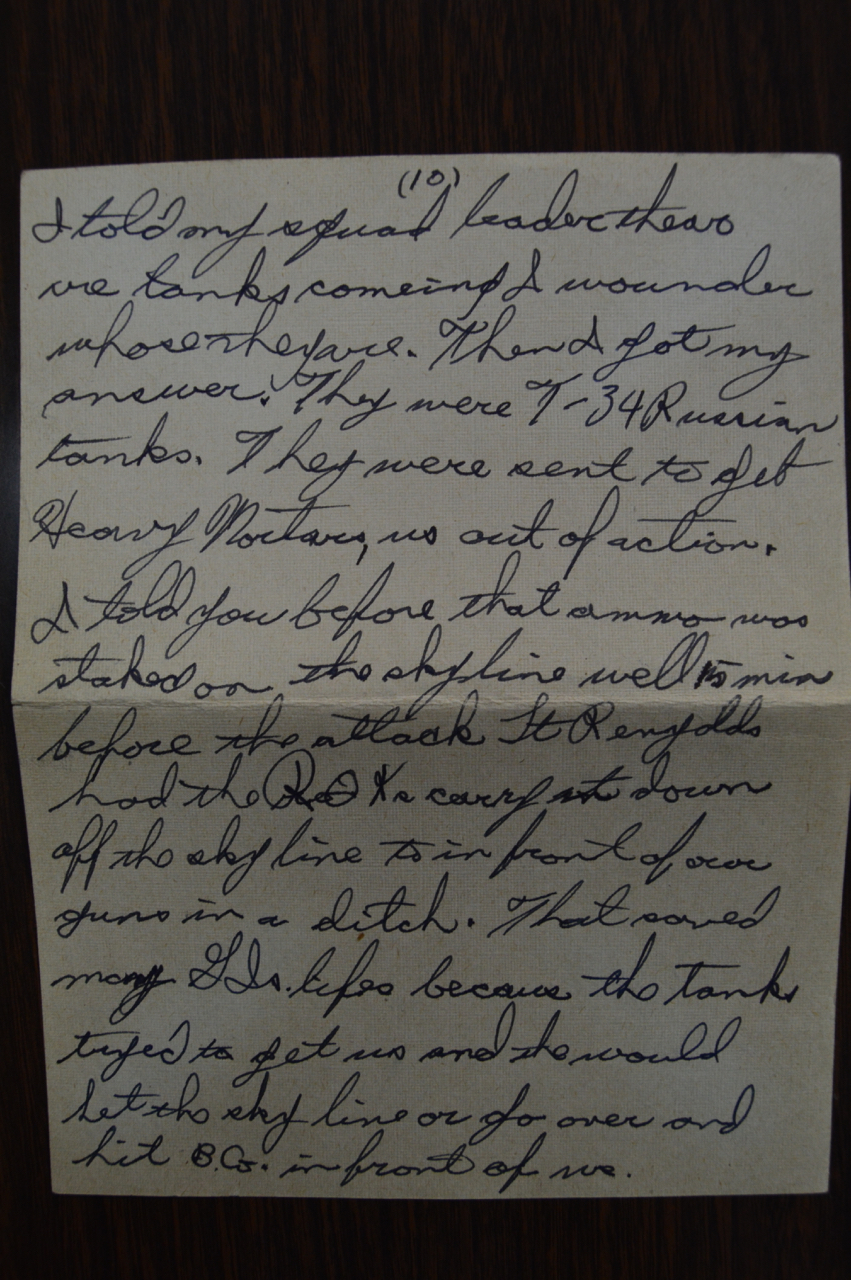 (10)
I told my squad leader thear
are tanks comeing I wounder
whose they are. Then I got my
answer. They were T-34 Russian
tanks. They were sent to get
Heavy Mortars, us out of action.
I told you before that ammo was
staked on the skyline well 15 min
before the attack Lt Rengolds
had the ROKs carry it down
off the sky line to in front of our
guns in a ditch. That saved
many GIs. lifes because the tanks
tryed to get us and the would
het the sky line or go over and
hit B.Co. in front of us.